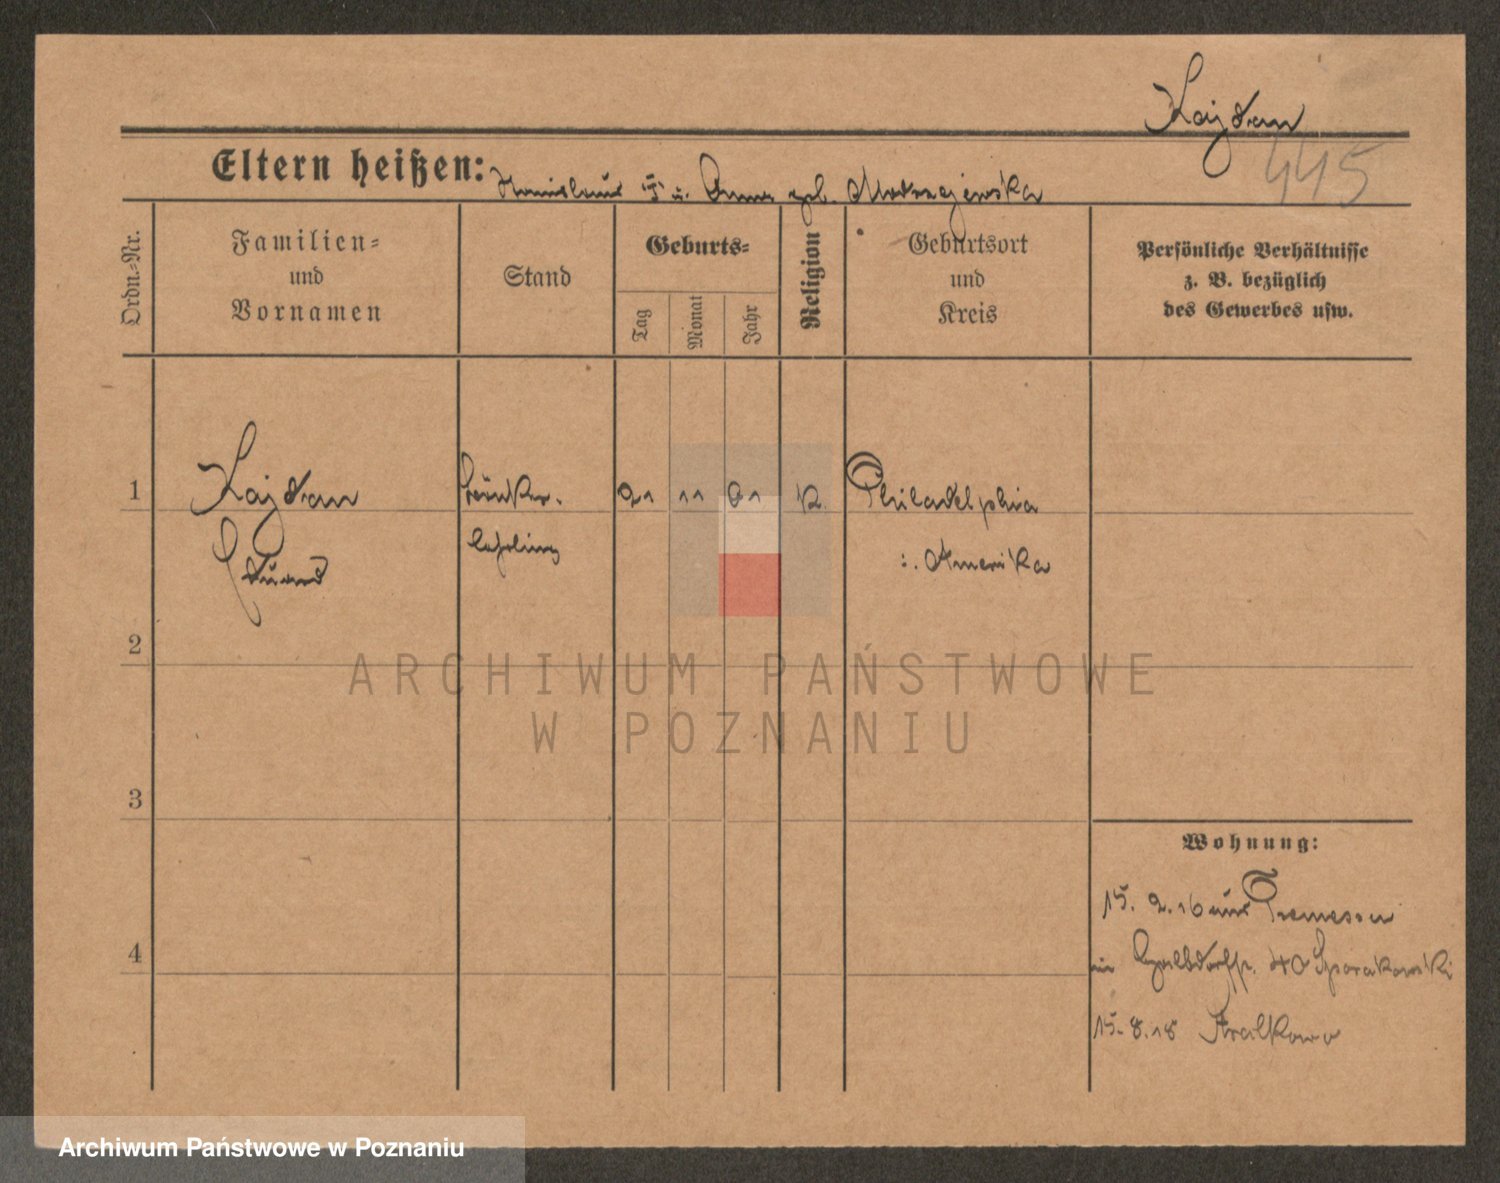 Kajdan
445
Eltern heißen: Stanislaus † u. Anna geb. Modrzejewska
Ordn.=Nr.
Familien=
und
Vornamen
Stand
Geburts=
Tag
Monat
Jahr
Religion
Geburtsort
und
Kreis
Persönliche Verhältnisse
z. B. bezüglich
des Gewerbes usw.
1
Kajdan
Eduard
lehrling
11
k.
Philadelphia
Amerika
2
ARCHIWUM PAŃSTWOWE
W POZNANIU
3
4
Wohnung:
15. 2. 16 aus Tremessen
40
15. 8. 18 Stralkowo
Archiwum Państwowe w Poznaniu